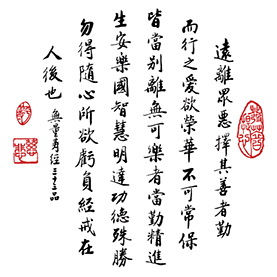 遠離眾惡擇其善者勤
而行之愛欲榮華不可常保
皆當別離無可樂者當勤精進
生安樂國智慧明達功德殊勝
勿得隨心所欲虧負經戒在
人後也
無量壽經三十三品